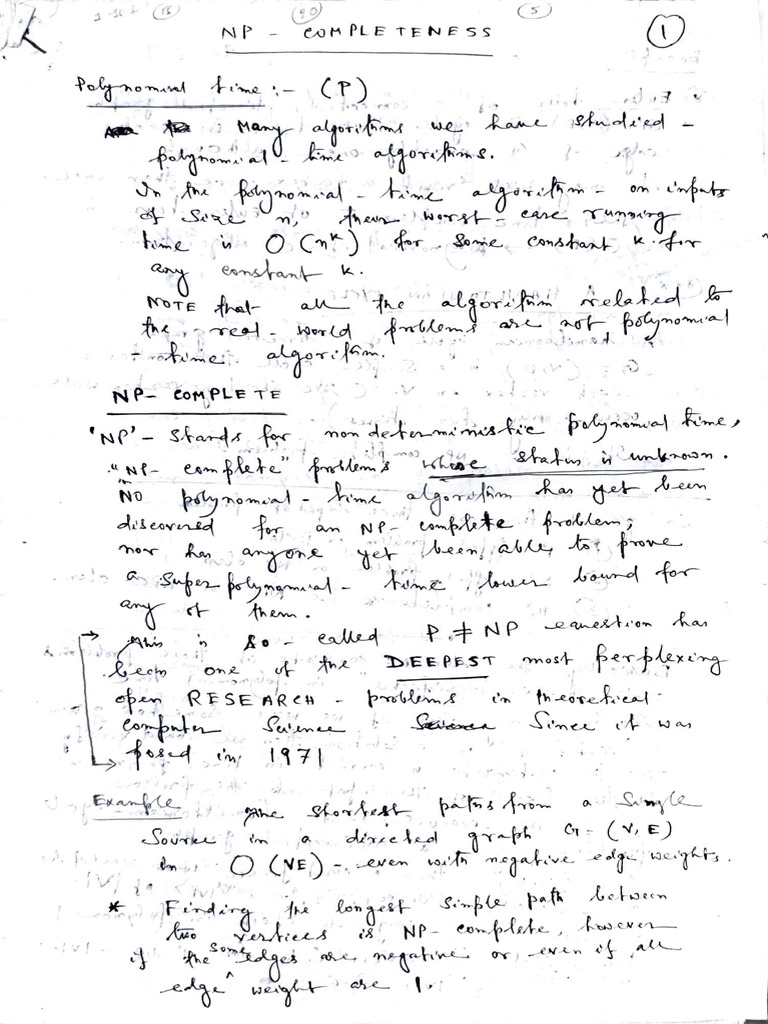 NP - COMPLETENESS
1
Polynomial time :- (P)
Many algorithms we have studied -
polynomial - time algorithms.
In the polynomial - time algorithm - on inputs
of size n, their worst - case running
time is O (n^k) for some constant k for
any constant k.
NOTE that all the algorithm related to
the real - world problems are not polynomial
- time algorithm.
NP - COMPLETE
'NP' - Stands for nondeterministic polynomial time,
"NP - complete" problems whose status is unknown.
NO polynomial - time algorithm has yet been
discovered for an NP - complete problem;
nor has anyone yet been able to prove
a super polynomial - time lower bound for
any of them.
This is so - called P ≠ NP question has
been one of the DEEPEST most perplexing
open RESEARCH - problems in theoretical
computer Science Since it was
posed in 1971
Example The shortest paths from a Single
Source in a directed graph G = (V, E)
in O (VE) - even with negative edge weights.
* Finding the longest simple path between
two vertices is NP - complete, however
if the some edges are negative or even if all
edge weight are 1.